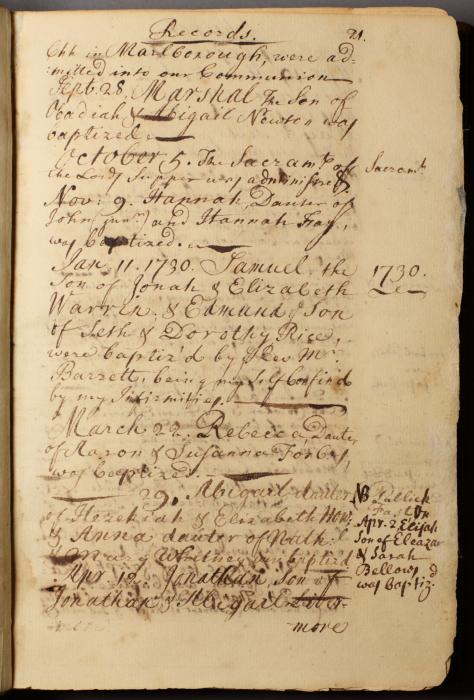 Records. 21.
Chh in Marlborough, were ad-
mitted into our Communion
Sept. 28. Marshal The Son of
Obadiah & Abigail Newton was
baptized.
October 5. The Sacramt. of
the Lords Supper was administred.
Sacramt.
Nov: 9. Hannah, Dauter of
John (junr.) and Hannah Fay,
was baptized.
Jan. 11. 1730. Samuel, the
1730.
Son of Jonah & Elizabeth
Warrin, & Edmund ye Son
of Seth & Dorothy Rice,
were baptiz'd by ye Rev Mr.
Barrett, being my self Confin'd
by my Infirmities.
March 22. Rebecca, Dauter
of Aaron & Susanna Forbes,
was baptized.
29. Abigail dauter
of Hezekiah & Elizabeth How,
& Anna dauter of Nathl.
& Mary Whitney were baptiz'd
Apr. 12. Jonathan, Son of
Jonathan & Abigail Liver-
more
NB Publick
Fast on
Apr. 2 Elijah
Son of Eleazar
& Sarah
Bellows
was baptizd